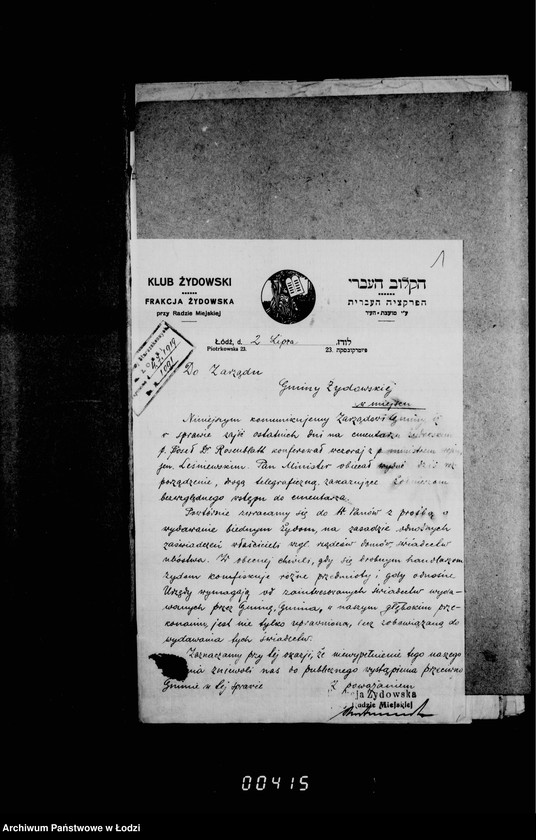 1
KLUB ŻYDOWSKI
FRAKCJA ŻYDOWSKA
przy Radzie Miejskiej
הקלוב העברי
הפרקציה העברית
ע״י מועצת-העיר
Łódź, d. 2 Lipca לודז,
Piotrkowska 23. 23. פיוטרקובסקה
1919
1001
Do Zarządu
Gminy Żydowskiej
w miejscu
Niniejszym komunikujemy Zarządowi Gminy, iż
w sprawie zajść ostatnich dni na cmentarzu żydowskim
p. Poseł Dr Rosenblatt konferował wczoraj z p. ministrem
gen. Leśniewskim. Pan Minister obiecał wydać dziś roz-
porządzenie, drogą telegraficzną, zakazujące żołnierzom
bezwzględnego wstępu do cmentarza.
Powtórnie zwracamy się do W. Panów z prośbą o
wydawanie biednym Żydom, na zasadzie odnośnych
zaświadczeń właścicieli wzgl. rządców domów, świadectw
ubóstwa. W obecnej chwili, gdy się drobnym handlarzom
żydom konfiskuje różne przedmioty i gdy odnośne
Urzędy wymagają od zainteresowanych świadectw wyda-
wanych przez Gminę, Gmina, w naszym głębokim prze-
konaniu, jest nie tylko uprawniona, lecz zobowiązana do
wydawania tych świadectw.
Zaznaczamy przy tej okazji, że niewypełnienie tego naszego
nia zniewoli nas do publicznego wystąpienia przeciwko
Gminie w tej sprawie
Z poważaniem
ja Żydowska
Radzie Miejskiej
00415
Archiwum Państwowe w Łodzi